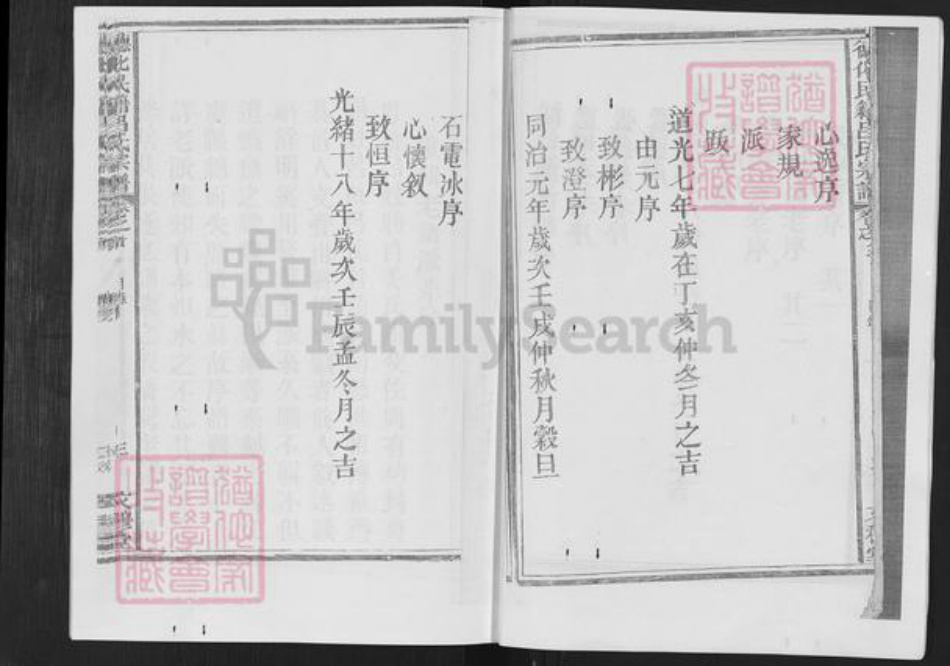 心逸序
家規
派
跋
道光七年歲在丁亥仲冬月之吉
由元序
致彬序
致澄序
同治元年歲次壬戌仲秋月穀旦
石電冰序
心懷敘
致恒序
光緒十八年歲次壬辰孟冬月之吉
FamilySearch